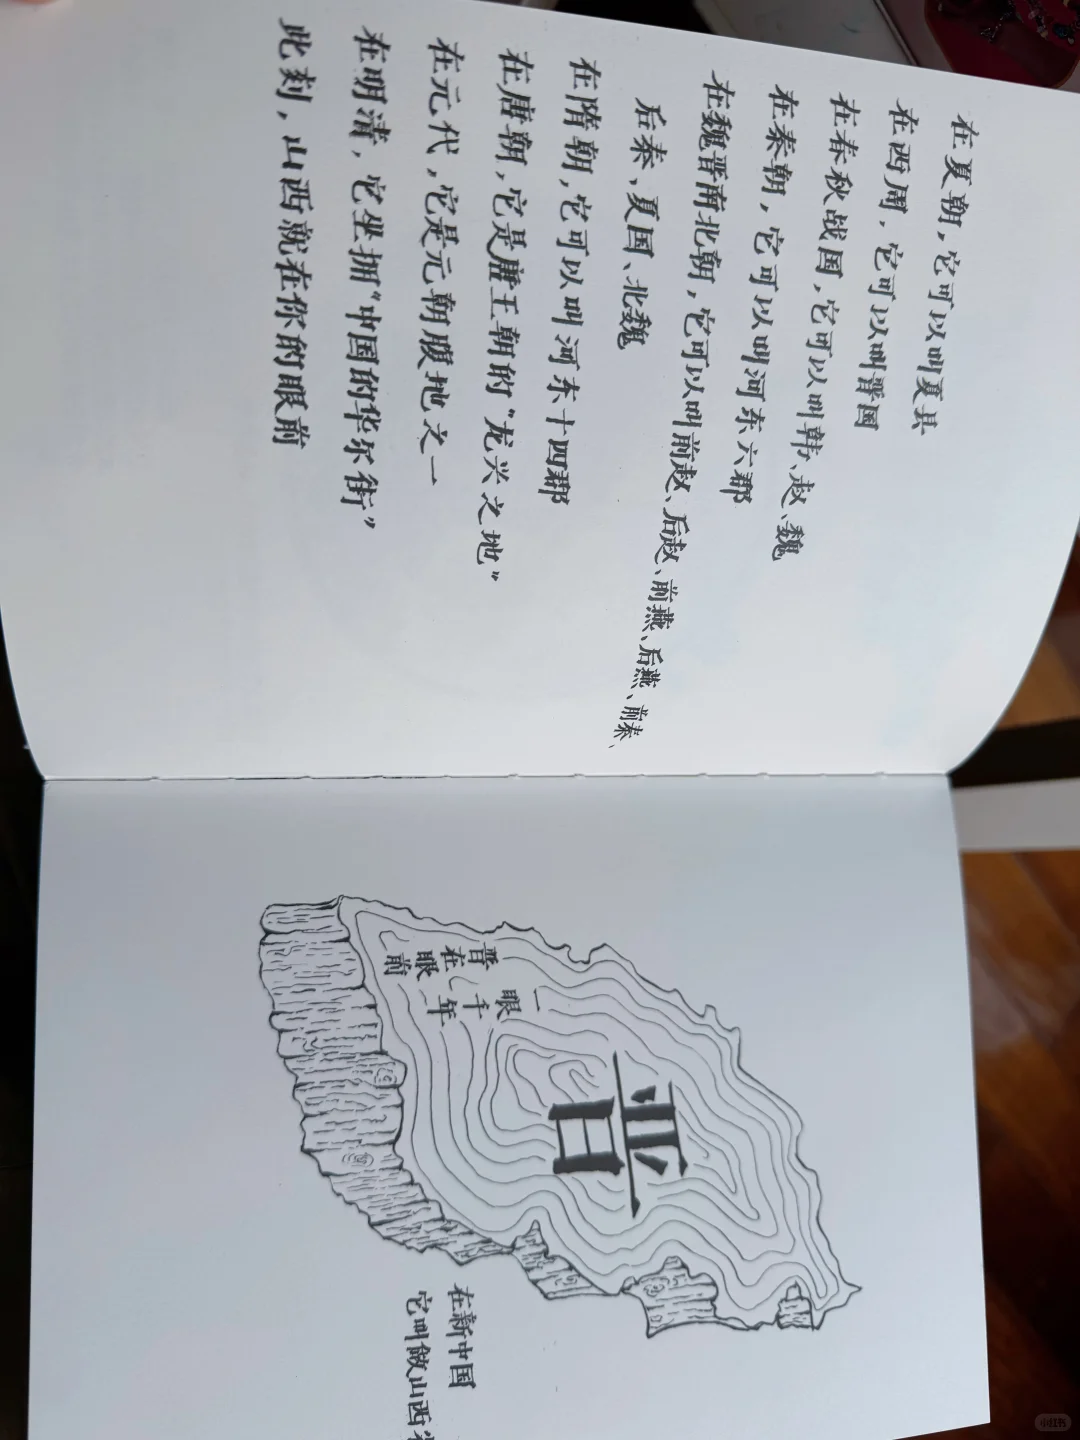 在夏朝，它可以叫夏县
在西周，它可以叫晋国
在春秋战国，它可以叫韩、赵、魏
在秦朝，它可以叫河东六郡
在魏晋南北朝，它可以叫前赵、后赵、前燕、后燕、前秦、
后秦、夏国、北魏
在隋朝，它可以叫河东十四郡
在唐朝，它是唐王朝的“龙兴之地”
在元代，它是元朝腹地之一
在明清，它坐拥“中国的华尔街”
此刻，山西就在你的眼前
晋
一眼千年
晋在眼前
在新中国
它叫做山西
小红书